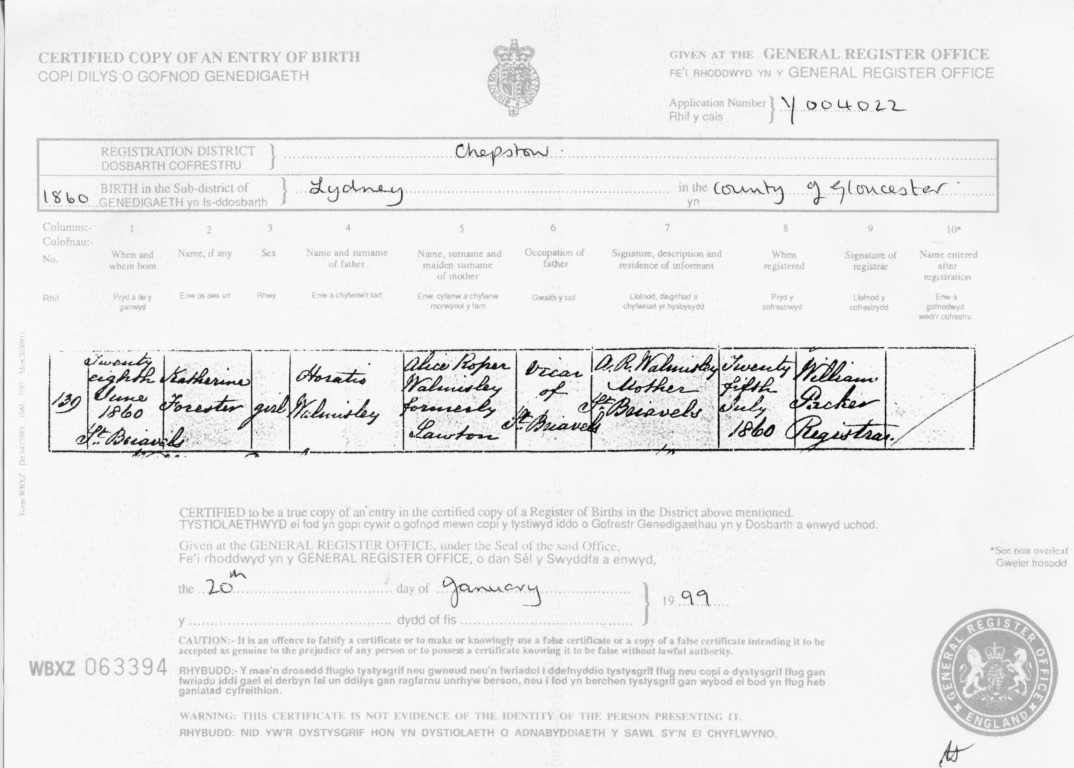 CERTIFIED COPY OF AN ENTRY OF BIRTH
COPI DILYS O GOFNOD GENEDIGAETH
GIVEN AT THE GENERAL REGISTER OFFICE
FE'I RHODDWYD YN Y GENERAL REGISTER OFFICE
Application Number Y004022
Rhif y cais
REGISTRATION DISTRICT Chepstow
DOSBARTH COFRESTRU
1860 BIRTH in the Sub-district of Lydney in the County of Gloucester
GENEDIGAETH yn Is-ddosbarth yn
Columns:- 1 2 3 4 5 6 7 8 9 10*
Colofnau:-
No.
When and where born
Name, if any
Sex
Name and surname of father
Name, surname and maiden surname of mother
Occupation of father
Signature, description and residence of informant
When registered
Signature of registrar
Name entered after registration
Rhif
Pryd a lle y ganwyd
Enw os oes un
Rhyw
Enw a chyfenw'r tad
Enw, cyfenw a chyfenw morwynol y fam
Gwaith y tad
Llofnod, disgrifiad a chyfeiriad yr hysbysydd
Pryd y cofrestrwyd
Llofnod y cofrestrydd
Enw a gofnodwyd wedi'r cofrestru
139
Twenty eighth June 1860 St. Briavels
Katherine Forester
girl
Horatio Walmisley
Alice Roper Walmisley formerly Lawton
Vicar of St. Briavels
A. R. Walmisley Mother St. Briavels
Twenty fifth July 1860
William Packer Registrar.
CERTIFIED to be a true copy of an entry in the certified copy of a Register of Births in the District above mentioned.
TYSTIOLAETHWYD ei fod yn gopi cywir o gofnod mewn copi y tystiwyd iddo o Gofrestr Genedigaethau yn y Dosbarth a enwyd uchod.
Given at the GENERAL REGISTER OFFICE, under the Seal of the said Office,
Fe'i rhoddwyd yn y GENERAL REGISTER OFFICE, o dan Sêl y Swyddfa a enwyd,
*See note overleaf
Gweler trosodd
the 20th day of January 1999
y dydd of fis
CAUTION:- It is an offence to falsify a certificate or to make or knowingly use a false certificate or a copy of a false certificate intending it to be
accepted as genuine to the prejudice of any person or to possess a certificate knowing it to be false without lawful authority.
WBXZ 063394
RHYBUDD:- Y mae'n drosedd ffugio tystysgrif neu gwneud neu'n fwriadol i ddefnyddio tystysgrif ffug neu copi o dystysgrif ffug gan
fwriadu iddi gael ei derbyn fel un ddilys gan ragfarnu unrhyw berson, neu i fod yn berchen tystysgrif gan wybod ei bod yn ffug heb
ganiatad cyfreithion.
WARNING: THIS CERTIFICATE IS NOT EVIDENCE OF THE IDENTITY OF THE PERSON PRESENTING IT.
RHYBUDD: NID YW'R DYSTYSGRIF HON YN DYSTIOLAETH O ADNABYDDIAETH Y SAWL SY'N EI CHYFLWYNO.
GENERAL REGISTER OFFICE
ENGLAND